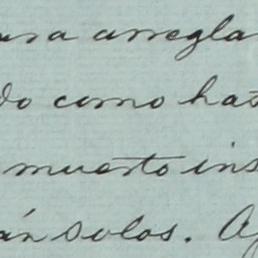 ura arregla
do como has
muerto ins
án solos. A